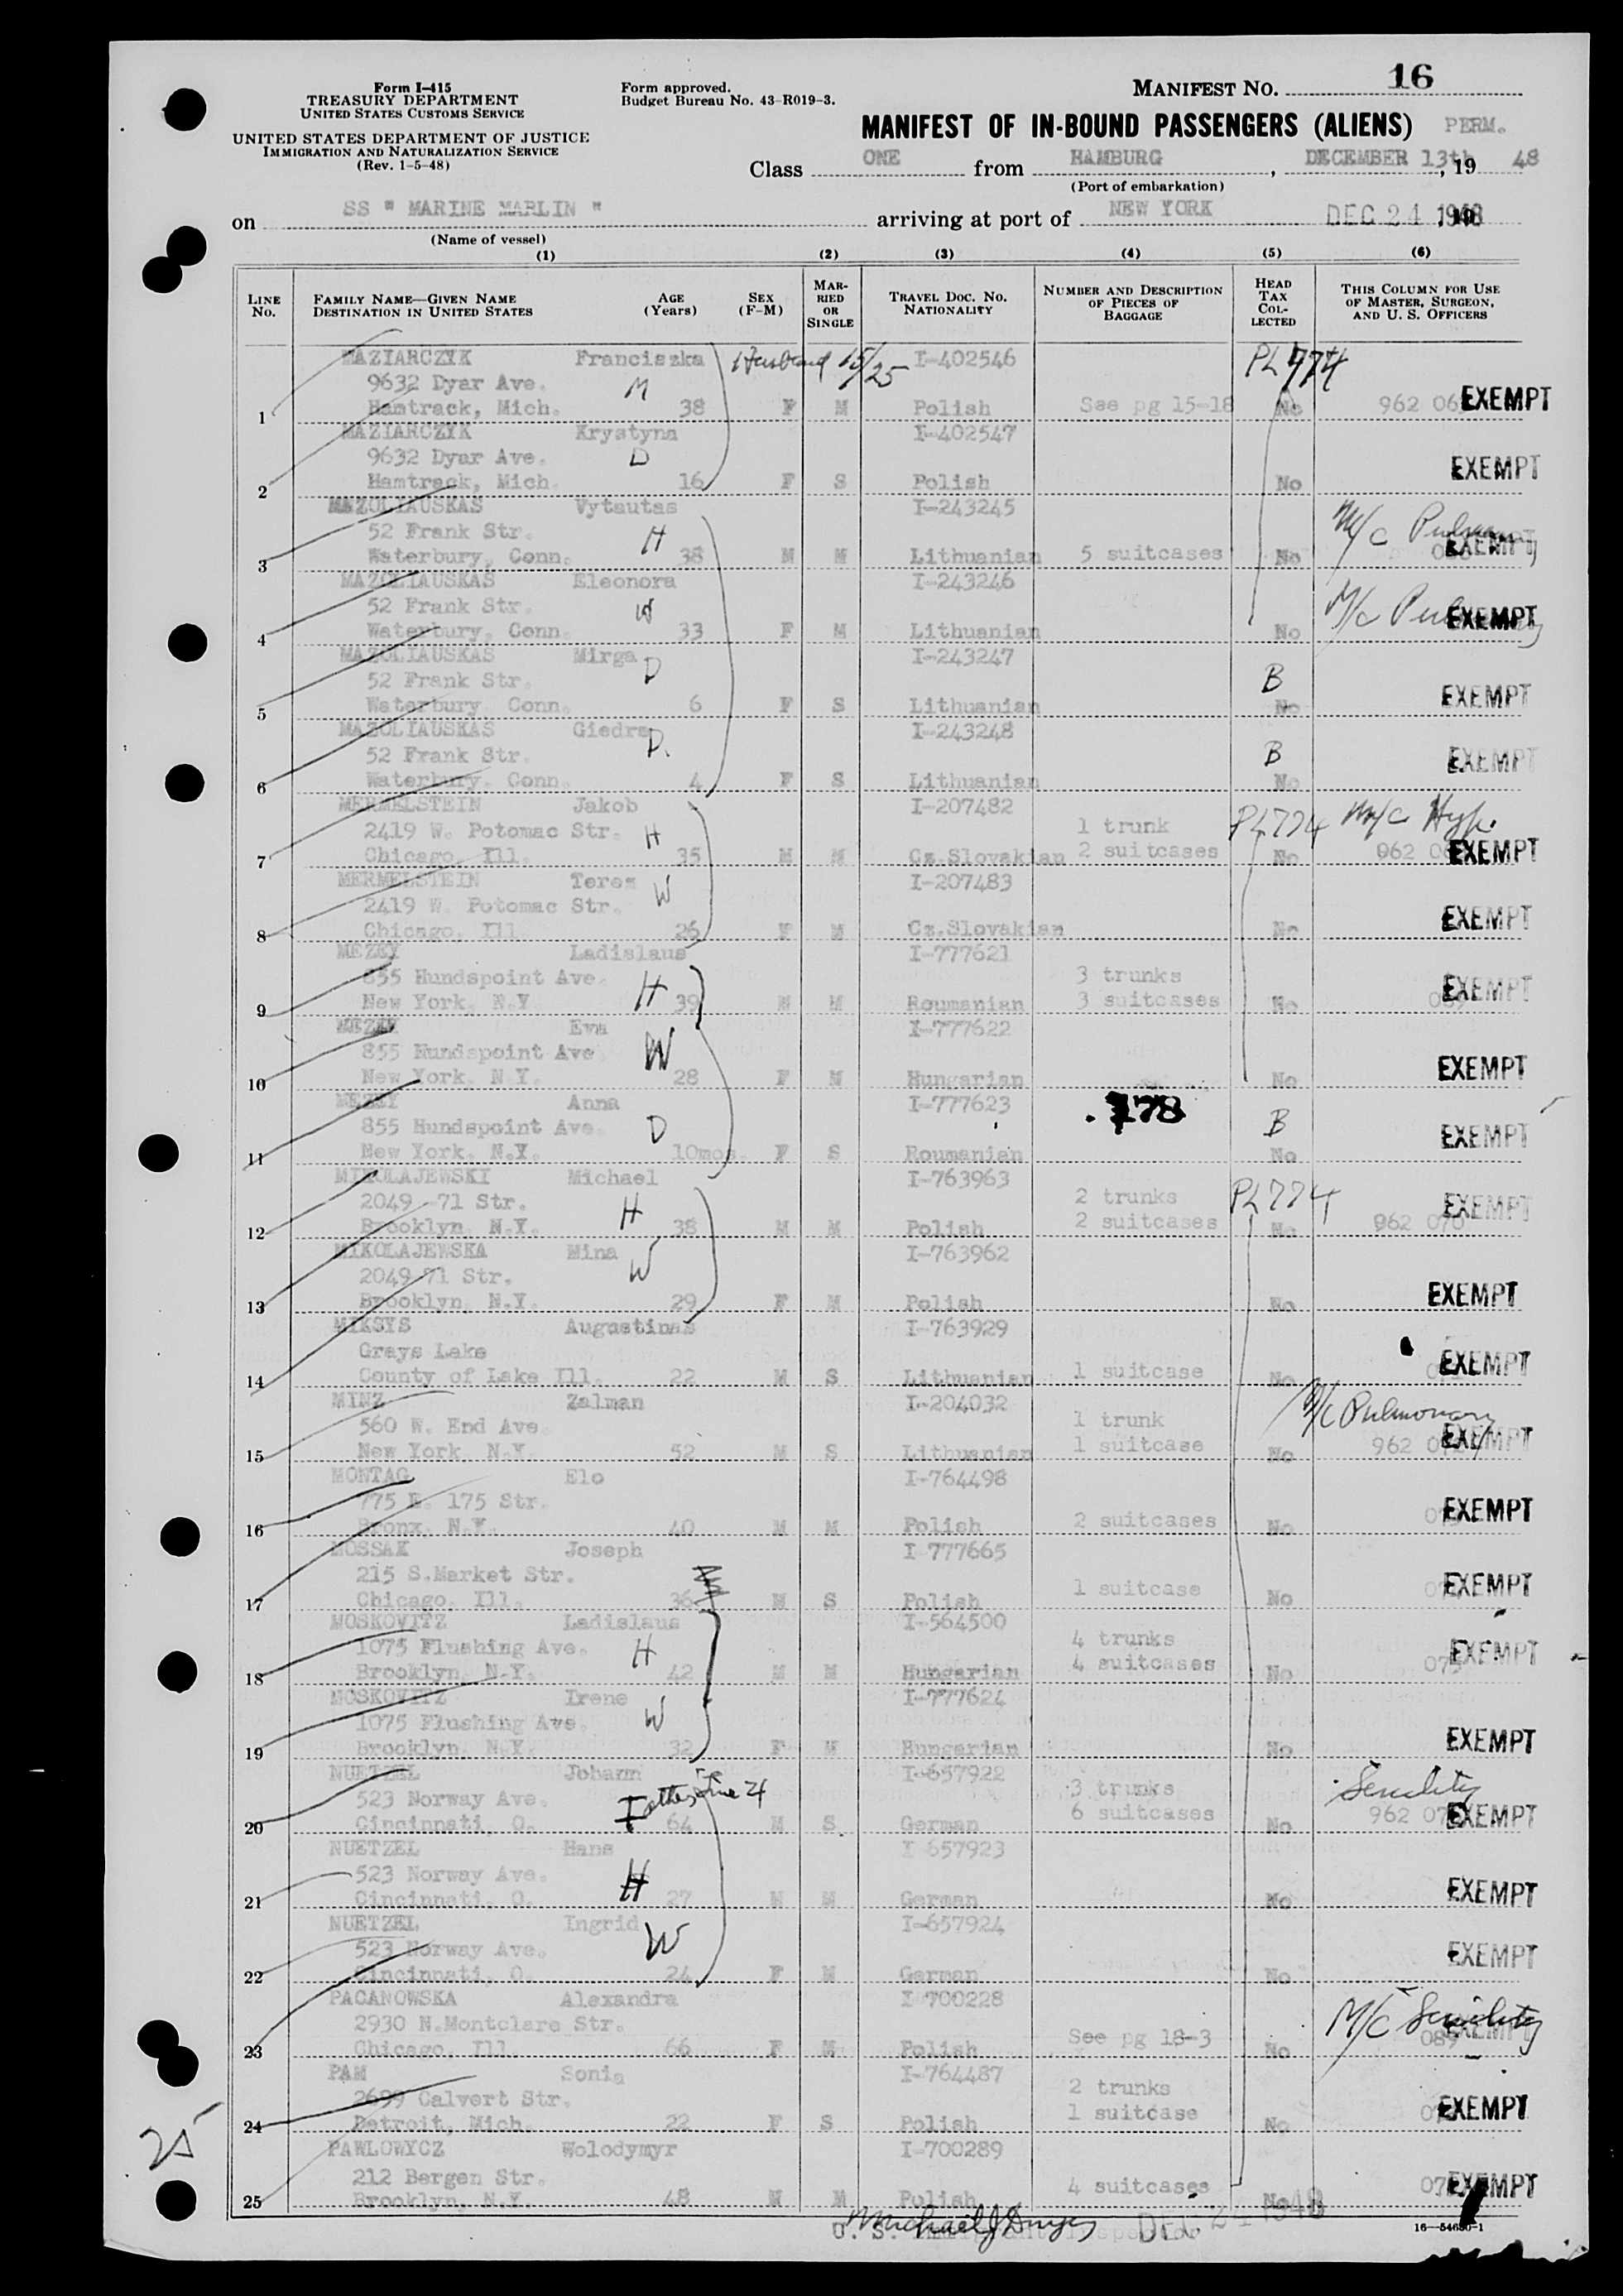 Form I-415
TREASURY DEPARTMENT
UNITED STATES CUSTOMS SERVICE
UNITED STATES DEPARTMENT OF JUSTICE
IMMIGRATION AND NATURALIZATION SERVICE
(Rev. 1-5-48)
Form approved.
Budget Bureau No. 43-R019-3.
MANIFEST NO. 16
MANIFEST OF IN-BOUND PASSENGERS (ALIENS) PERM.
Class ONE from HAMBURG, DECEMBER 13th, 19 48
(Port of embarkation)
on SS " MARINE MARLIN " arriving at port of NEW YORK DEC 24 1948
(Name of vessel)
(1) (2) (3) (4) (5) (6)
LINE NO. FAMILY NAME—GIVEN NAME DESTINATION IN UNITED STATES AGE (Years) SEX (F-M) MARRIED OR SINGLE TRAVEL DOC. NO. NATIONALITY NUMBER AND DESCRIPTION OF PIECES OF BAGGAGE HEAD TAX COLLECTED THIS COLUMN FOR USE OF MASTER, SURGEON, AND U. S. OFFICERS
MAZIARCZYK Franciszka Husband 15/25 I-402546 PL 774
9632 Dyar Ave. M
1 Hamtrack, Mich. 38 F M Polish See pg 15-18 No 962 06 EXEMPT
MAZIARCZYK Krystyna I-402547
9632 Dyar Ave. D
2 Hamtrack, Mich. 16 F S Polish No EXEMPT
MAZOLIAUSKAS Vytautas I-243245
52 Frank Str. H M/C Pulmonary
3 Waterbury, Conn. 38 M M Lithuanian 5 suitcases No EXEMPT
MAZOLIAUSKAS Eleonora I-243246
52 Frank Str. W M/C
4 Waterbury, Conn. 33 F M Lithuanian No EXEMPT
MAZOLIAUSKAS Mirga I-243247
52 Frank Str. D B
5 Waterbury, Conn. 6 F S Lithuanian No EXEMPT
MAZOLIAUSKAS Giedra I-243248
52 Frank Str. D. B
6 Waterbury, Conn. 4 F S Lithuanian No EXEMPT
MERMELSTEIN Jakob I-207482
2419 W. Potomac Str. H 1 trunk PL774 M/C Hyp.
7 Chicago, Ill. 35 M M Cz.Slovakian 2 suitcases No 962 EXEMPT
MERMELSTEIN Teres I-207483
2419 W. Potomac Str. W
8 Chicago, Ill. 26 F M Cz.Slovakian No EXEMPT
MEZEY Ladislaus I-777621
855 Hundspoint Ave. H 3 trunks
9 New York, N.Y 39 M M Roumanian 3 suitcases No EXEMPT
MEZEY Eva I-777622
855 Hundspoint Ave W
10 New York, N.Y. 28 F M Hungarian No EXEMPT
MEZEY Anna I-777623 178
855 Hundspoint Ave. D B
11 New York, N.Y. 10mos. F S Roumanian No EXEMPT
MIKOLAJEWSKI Michael I-763963
2049-71 Str. H 2 trunks PL774
12 Brooklyn, N.Y. 38 M M Polish 2 suitcases No 962 070 EXEMPT
MIKOLAJEWSKA Mina I-763962
2049-71 Str. W
13 Brooklyn, N.Y. 29 F M Polish No EXEMPT
MIKSYS Augustinas I-763929
Grays Lake
14 County of Lake Ill. 22 M S Lithuanian 1 suitcase No EXEMPT
MINZ Zalman I-204032 M/C Pulmonary
560 W. End Ave. 1 trunk
15 New York, N.Y. 52 M S Lithuanian 1 suitcase No 962 EXEMPT
MONTAG Elo I-764498
775 E. 175 Str.
16 Bronx, N.Y. 40 M M Polish 2 suitcases No EXEMPT
MOSSAK Joseph I 777665
215 S.Market Str.
17 Chicago, Ill. 36 M S Polish 1 suitcase No EXEMPT
MOSKOVITZ Ladislaus I-564500
1075 Flushing Ave. H 4 trunks
18 Brooklyn, N.Y. 42 M M Hungarian 4 suitcases No 075 EXEMPT
MOSKOVITZ Irene I-777624
1075 Flushing Ave. W
19 Brooklyn, N.Y. 32 F M Hungarian No EXEMPT
NUETZEL Johann I-657922
523 Norway Ave. Father line 21 3 trunks Senility
20 Cincinnati, O. 64 M S German 6 suitcases No 962 EXEMPT
NUETZEL Hans I 657923
523 Norway Ave. H
21 Cincinnati, O. 27 M M German No EXEMPT
NUETZEL Ingrid I-657924
523 Norway Ave. W
22 Cincinnati, O. 24 F M German No EXEMPT
PACANOWSKA Alexandra I 700228
2930 N.Montclare Str. M/C Senility
23 Chicago, Ill. 66 F M Polish See pg 18-3 No EXEMPT
PAM Sonia I-764487
2699 Calvert Str. 2 trunks
24 Detroit, Mich. 22 F S Polish 1 suitcase No EXEMPT
25
PAWLOWYCZ Wolodymyr I-700289
212 Bergen Str.
25 Brooklyn, N.Y. 48 M M Polish 4 suitcases No EXEMPT
U. S. Immigrant Inspector DEC 24 1948
16—54680-1